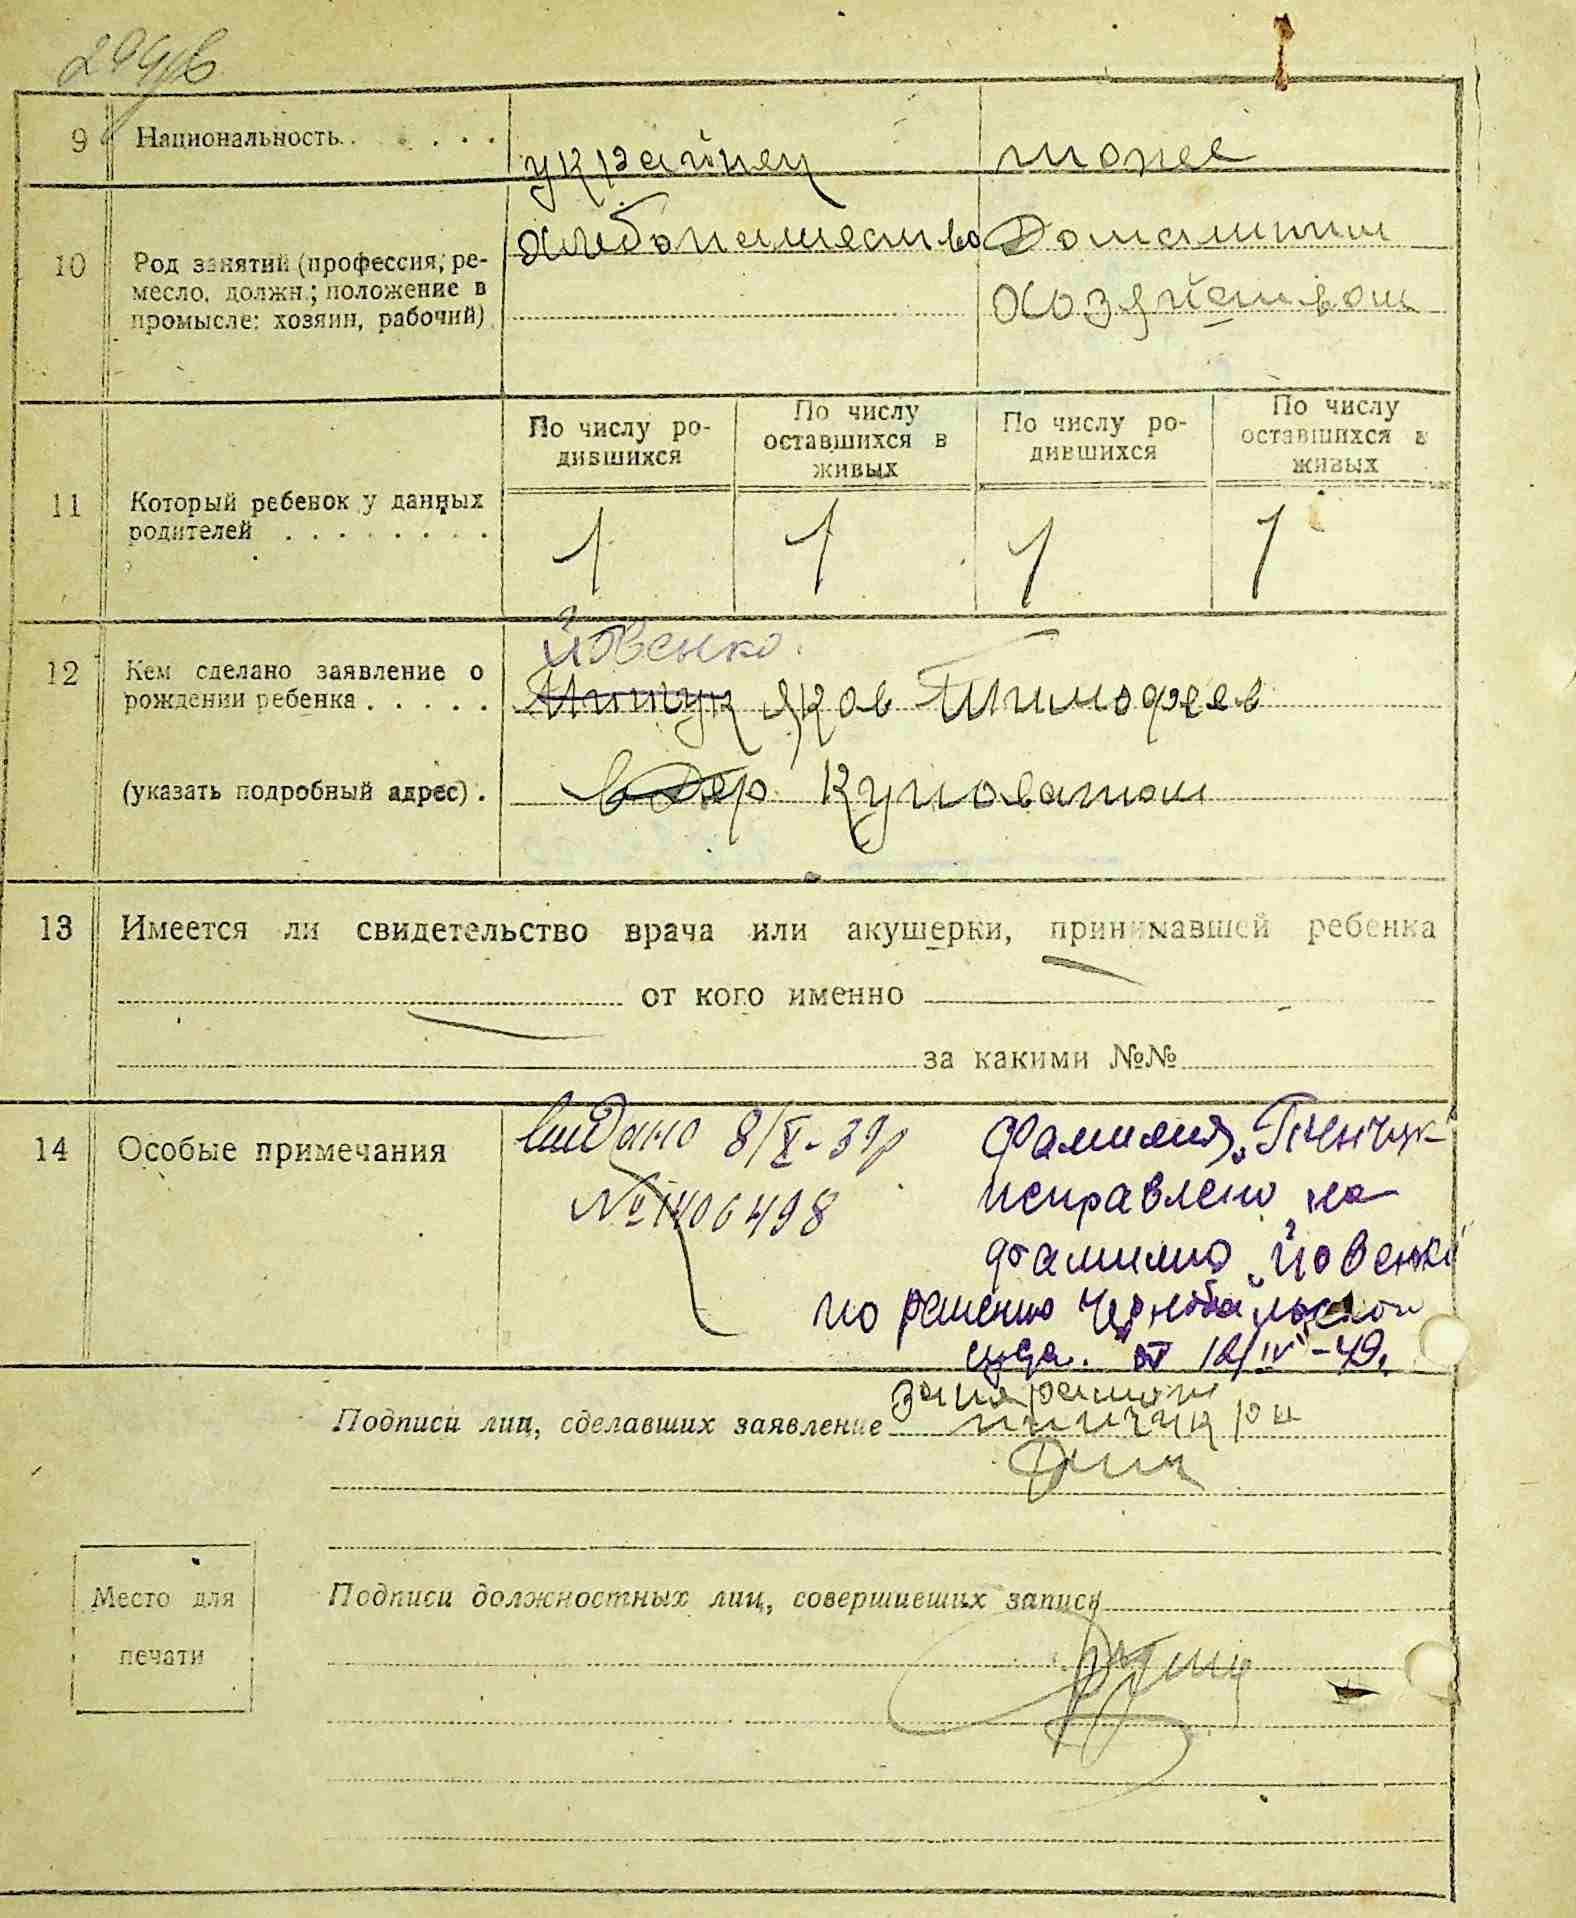 9 Национальность. . . . . . украйнец тоже
хлебопашество Домашним
10 Род занятий (профессия, ре-
месло, должн.; положение в хозяйством
промысле: хозяин, рабочий)
По числу ро-
дившихся
По числу
оставшихся в
живых
По числу ро-
дившихся
По числу
оставшихся в
живых
11 Который ребенок у данных
родителей . . . . . . . .
1 1 1 1
Йовенко
12 Кем сделано заявление о
рождении ребенка . . . . . Яков Тимофеев
(указать подробный адрес) . в дер Куповатом
13 Имеется ли свидетельство врача или акушерки, принимавшей ребенка
от кого именно
за какими №№
14 Особые примечания
видано 8/X-39р
№ 1406498
Фамилия
исправлено на
фамилию „Йовенко"
по решению Чернобыльского
суда. от 12/IV-49.
Подписи лиц, сделавших заявление
Подписи должностных лиц, совершивших запись
Место для
печати